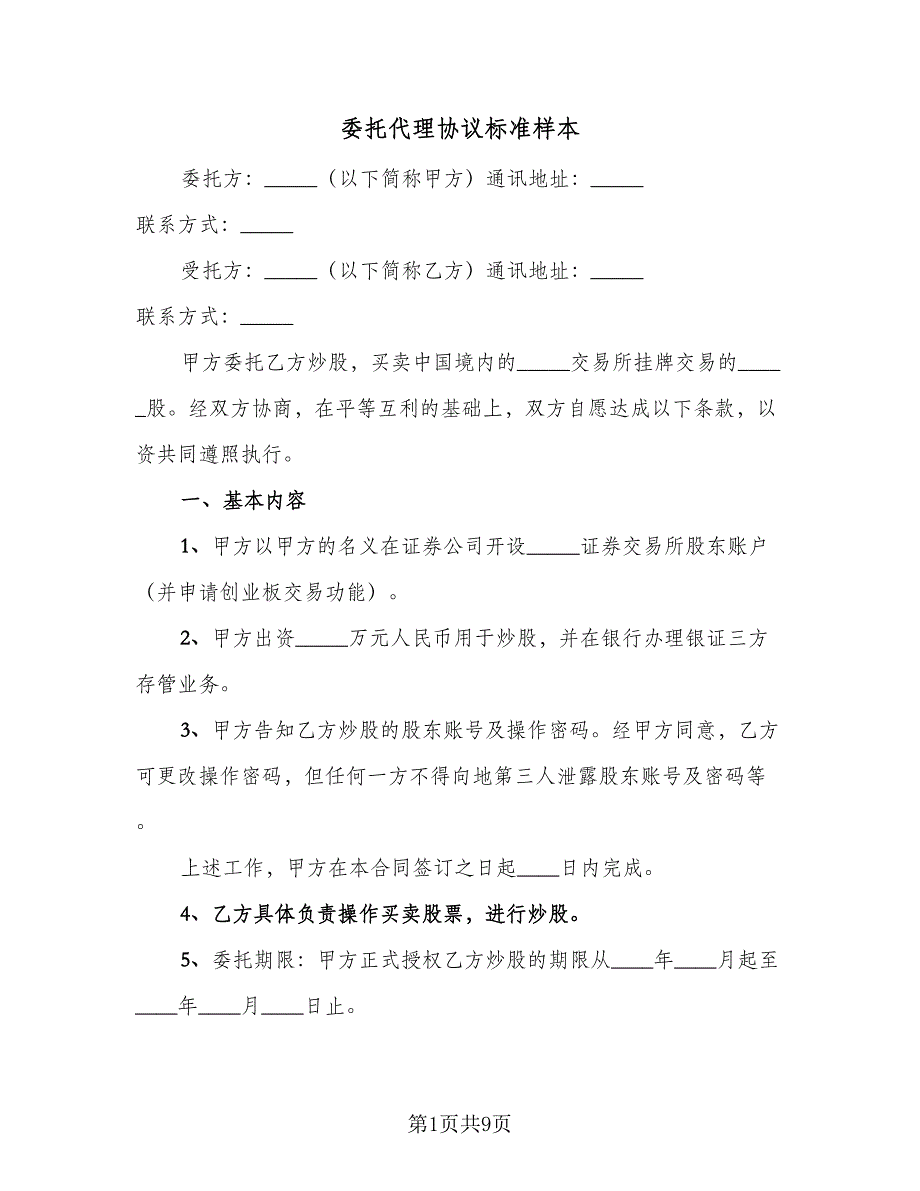 委托代理协议标准样本
委托方：_____（以下简称甲方）通讯地址：_____
联系方式：_____
受托方：_____（以下简称乙方）通讯地址：_____
联系方式：_____
甲方委托乙方炒股，买卖中国境内的_____交易所挂牌交易的____
_股。经双方协商，在平等互利的基础上，双方自愿达成以下条款，以
资共同遵照执行。
一、基本内容
1、甲方以甲方的名义在证券公司开设_____证券交易所股东账户
（并申请创业板交易功能）。
2、甲方出资_____万元人民币用于炒股，并在银行办理银证三方
存管业务。
3、甲方告知乙方炒股的股东账号及操作密码。经甲方同意，乙方
可更改操作密码，但任何一方不得向地第三人泄露股东账号及密码等
。
上述工作，甲方在本合同签订之日起____日内完成。
4、乙方具体负责操作买卖股票，进行炒股。
5、委托期限：甲方正式授权乙方炒股的期限从____年____月起至
____年____月____日止。
第1页共9页